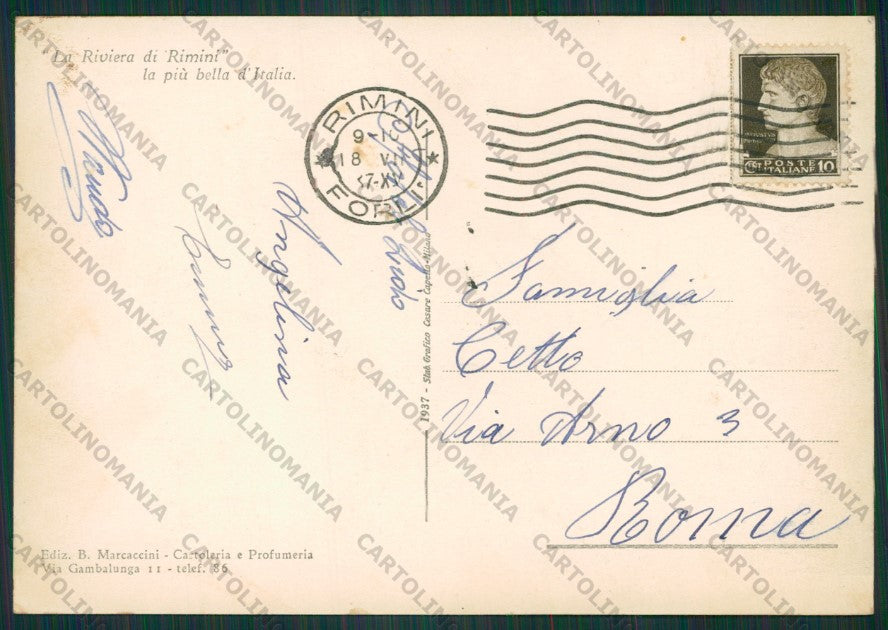 "La Riviera di Rimini"
la più bella d'Italia.
Angelina
RIMINI
9-10
FORLI
POSTE
ITALIANE 10
1937 - Stab. Grafico Cesare Capello - Milano
Famiglia
Cetto
Via Arno 3
Roma
Ediz. B. Marcaccini - Cartoleria e Profumeria
Via Gambalunga 11 - telef. 86
CARTOLINOMANIA